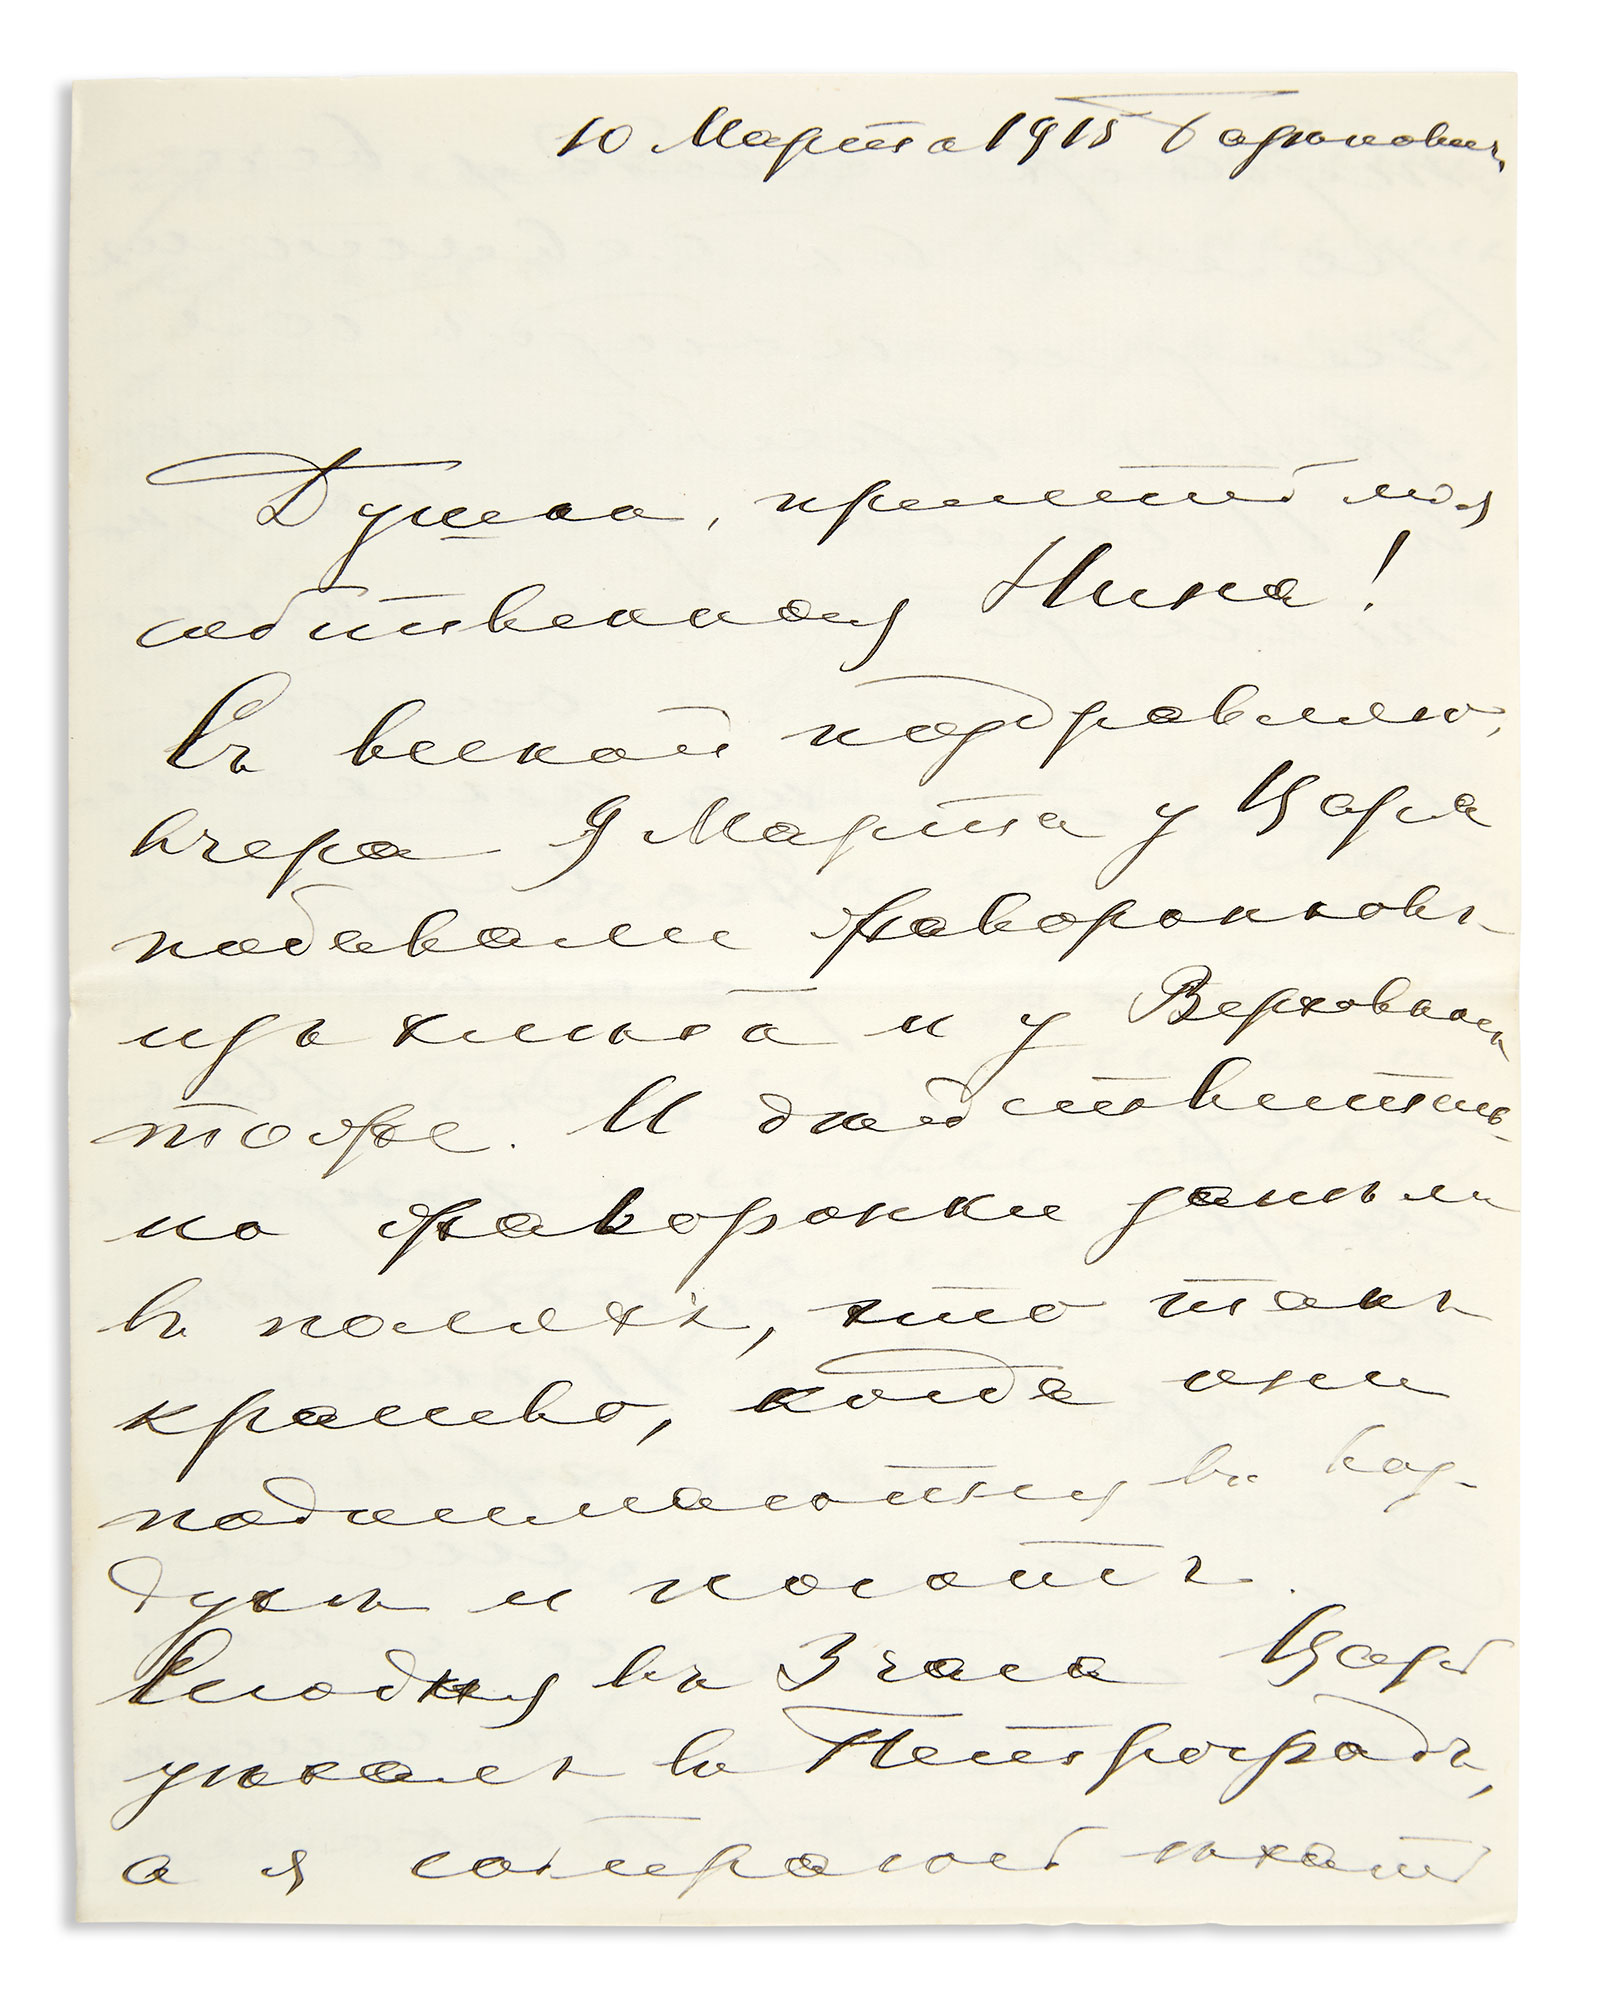 10 Марта 1915 Барановичи
Душка, прелесть моя
собственная Нина!
Съ весной поздравляю,
вчера 9 Марта у Царя
подавали жаворонковъ
изъ хлѣба и у Верховнаго
тоже. И дѣйствитель-
но жаворонки запѣли
въ поляхъ, это такъ
красиво, когда они
поднимаются въ воз-
духъ и поютъ.
Сегодня въ 3 часа Царь
уѣхалъ въ Петроградъ,
а я собираюсь ѣхать